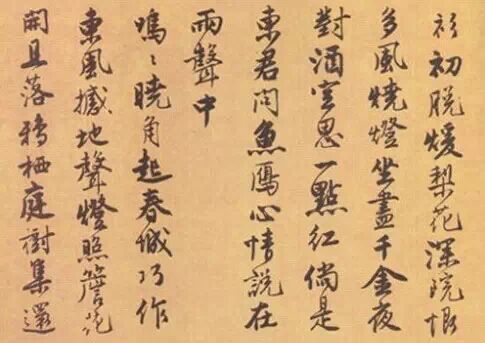 衫初脫煖梨花深院恨
多風燒燈坐盡千金夜
對酒空思一點紅倘是
東君問魚鴈心情說在
雨聲中
嗚〻曉角起春城巧作
東風撼地聲燈照簷花
開且落鴉栖庭樹集還